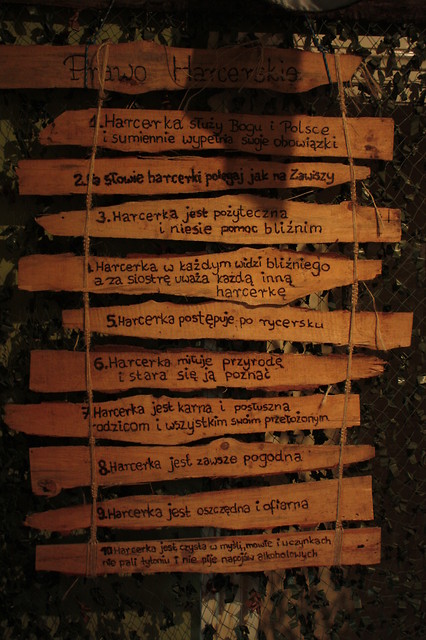 Prawo Harcerskie
1. Harcerka służy Bogu i Polsce
i sumiennie wypełnia swoje obowiązki
2. Na słowie harcerki polegaj jak na Zawiszy
3. Harcerka jest pożyteczna
i niesie pomoc bliźnim
4. Harcerka w każdym widzi bliźniego
a za siostrę uważa każdą inną
harcerkę
5. Harcerka postępuje po rycersku
6. Harcerka miłuje przyrodę
i stara się ją poznać
7. Harcerka jest karna i posłuszna
rodzicom i wszystkim swoim przełożonym
8. Harcerka jest zawsze pogodna
9. Harcerka jest oszczędna i ofiarna
10. Harcerka jest czysta w myśli, mowie i uczynkach
nie pali tytoniu i nie pije napojów alkoholowych